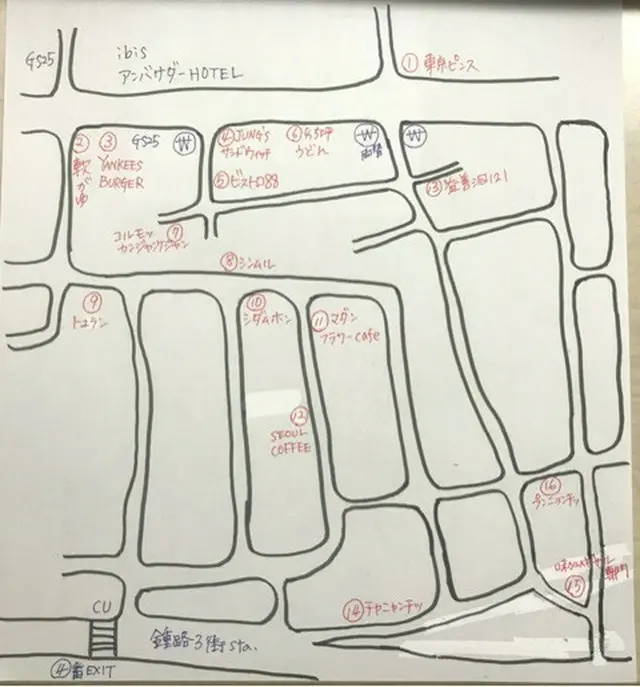 GS25
ibis
アンバサダーHOTEL
① 東京ピンス
② 軟がゆ
③ YANKEES
BURGER
GS25
₩
④ JUNG's
サンドウィッチ
⑤ ビストロ88
うどん
₩
₩
⑬ 益善洞121
コルモッ ⑦
カンジャンケジャン
⑧ シンムル
⑨
トスラン
⑩
シダムホン
⑪ マダン
フラワーcafe
⑫
SEOUL
COFFEE
⑯
⑮
専門
⑭ テャニャンテッ
CU
鍾路3街sta.
④番EXIT